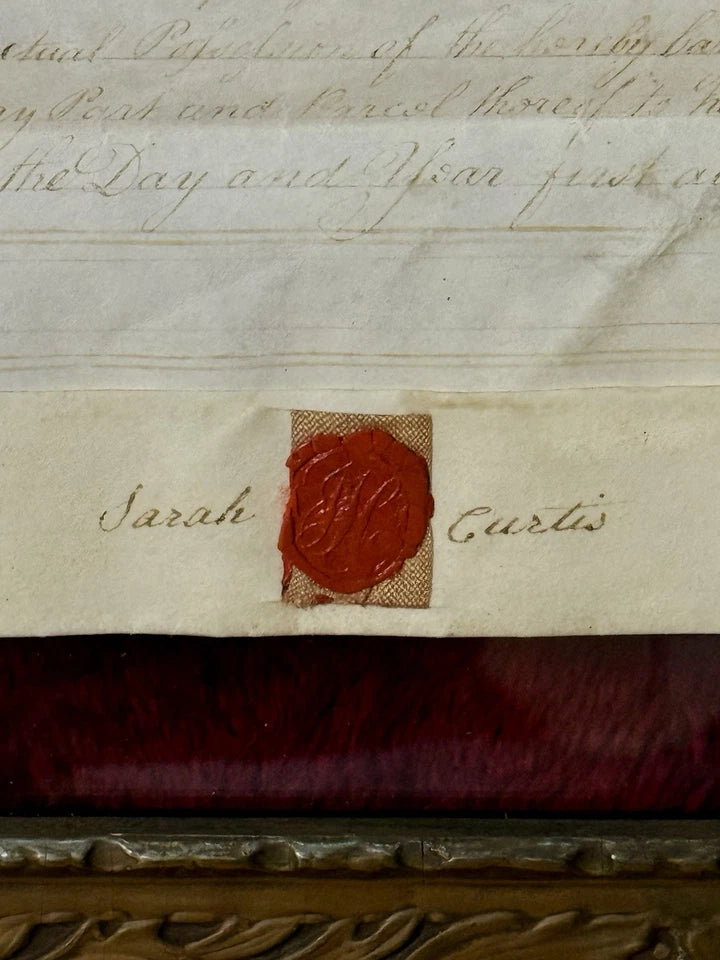 ctual Possession of the hereby ba
ny Part and Parcel thereof to h
the Day and Year first a
Sarah Curtis